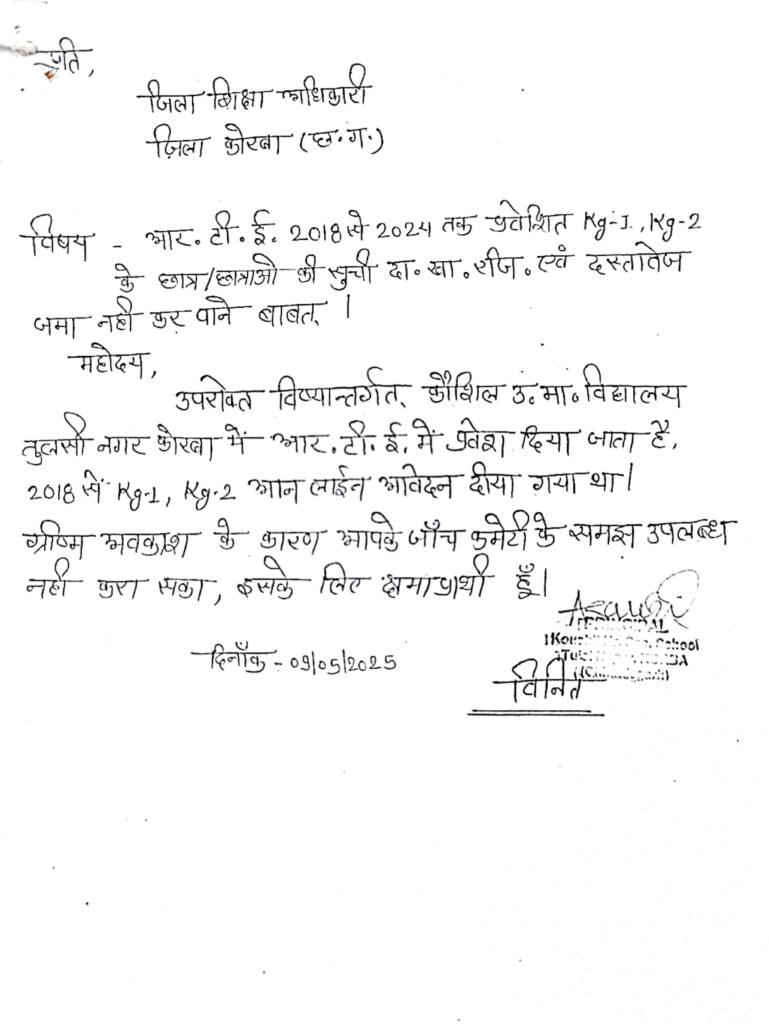 प्रति,
जिला शिक्षा अधिकारी
ज़िला कोरबा (छ.ग.)
विषय - आर. टी. ई. 2018 से 2024 तक प्रवेशित Kg-1, Kg-2
के छात्र/छात्राओ की सुची दा. खा. रीज. एवं दस्तावेज
जमा नही कर पाने बाबत् ।
महोदय,
उपरोक्त विष्यान्तर्गत, कौशिल उ. मा. विद्यालय
तुलसी नगर कोरबा में आर. टी. ई. में प्रवेश दिया जाता है,
2018 से Kg-1, Kg-2 आन लाईन आवेदन दीया गया था।
ग्रीष्म अवकाश के कारण आपके जाँच कमेटी के समझ उपलब्ध
नही करा सका, इसके लिए क्षमाप्रार्थी हूँ।
PRINCIPAL
School
दिनाँक - 09/05/2025
विनित